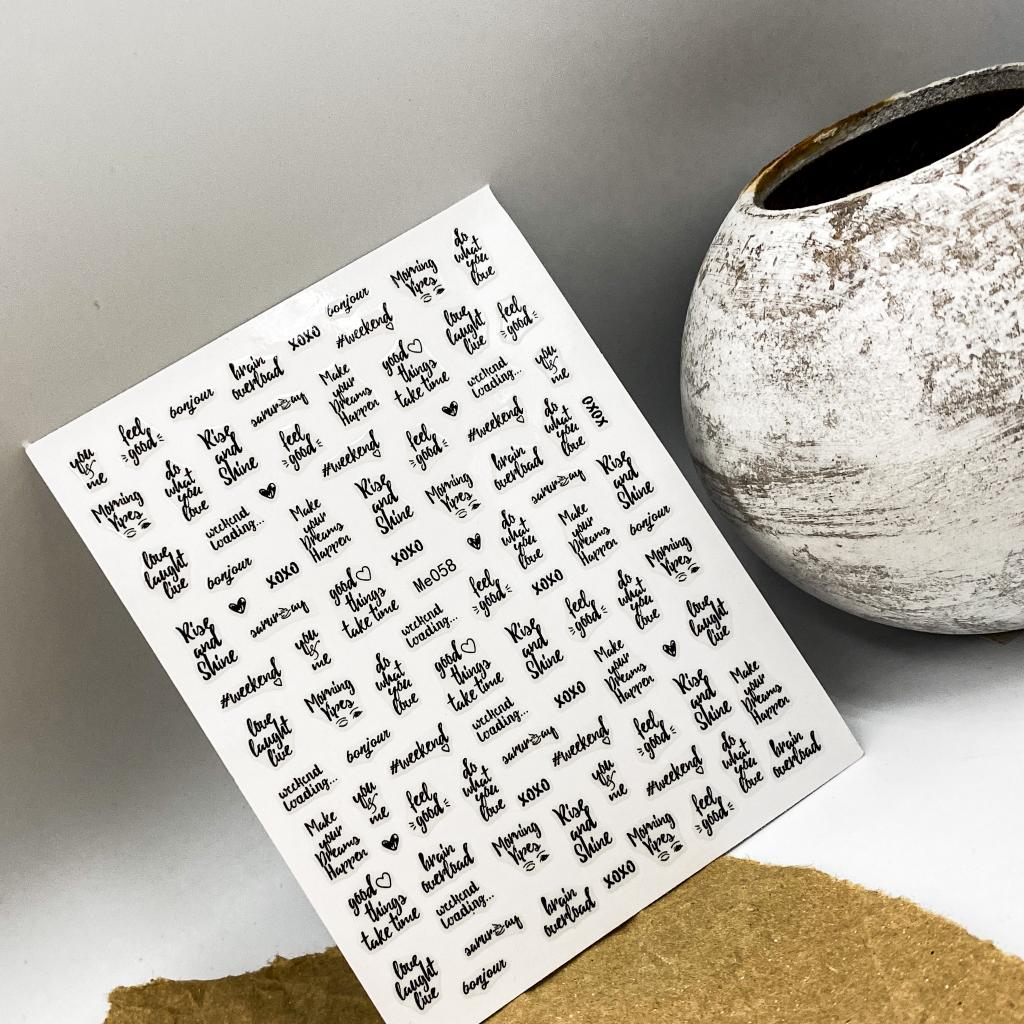 do
what
you
love
Morning
Vipes
bonjour
xoxo
#weekend
love
laught
live
feel
good
brain
overload
good
things
take time
you
&
me
bonjour
Make
your
Dreams
Happen
weekend
loading...
saturday
feel
good
you
&
me
Rise
and
Shine
feel
good
#weekend
feel
good
#weekend
do
what
you
love
xoxo
Morning
Vipes
do
what
you
love
weekend
loading...
Make
your
Dreams
Happen
Rise
and
Shine
Morning
Vipes
brain
overload
saturday
Rise
and
Shine
love
laught
live
bonjour
xoxo
good
things
take time
xoxo
Me058
do
what
you
love
Make
your
Dreams
Happen
bonjour
Rise
and
Shine
saturday
you
&
me
weekend
loading...
feel
good
xoxo
Morning
Vipes
#weekend
Morning
Vipes
do
what
you
love
good
things
take time
Rise
and
Shine
feel
good
do
what
you
love
love
laught
live
love
laught
live
bonjour
#weekend
weekend
loading...
xoxo
Make
your
Dreams
Happen
Rise
and
Shine
Make
your
Dreams
Happen
weekend
loading...
you
&
me
feel
good
do
what
you
love
saturday
#weekend
feel
good
Make
your
Dreams
Happen
xoxo
you
&
me
#weekend
do
what
you
love
brain
overload
good
things
take time
brain
overload
Morning
Vipes
Rise
and
Shine
Morning
Vipes
feel
good
weekend
loading...
xoxo
saturday
brain
overload
love
laught
live
bonjour